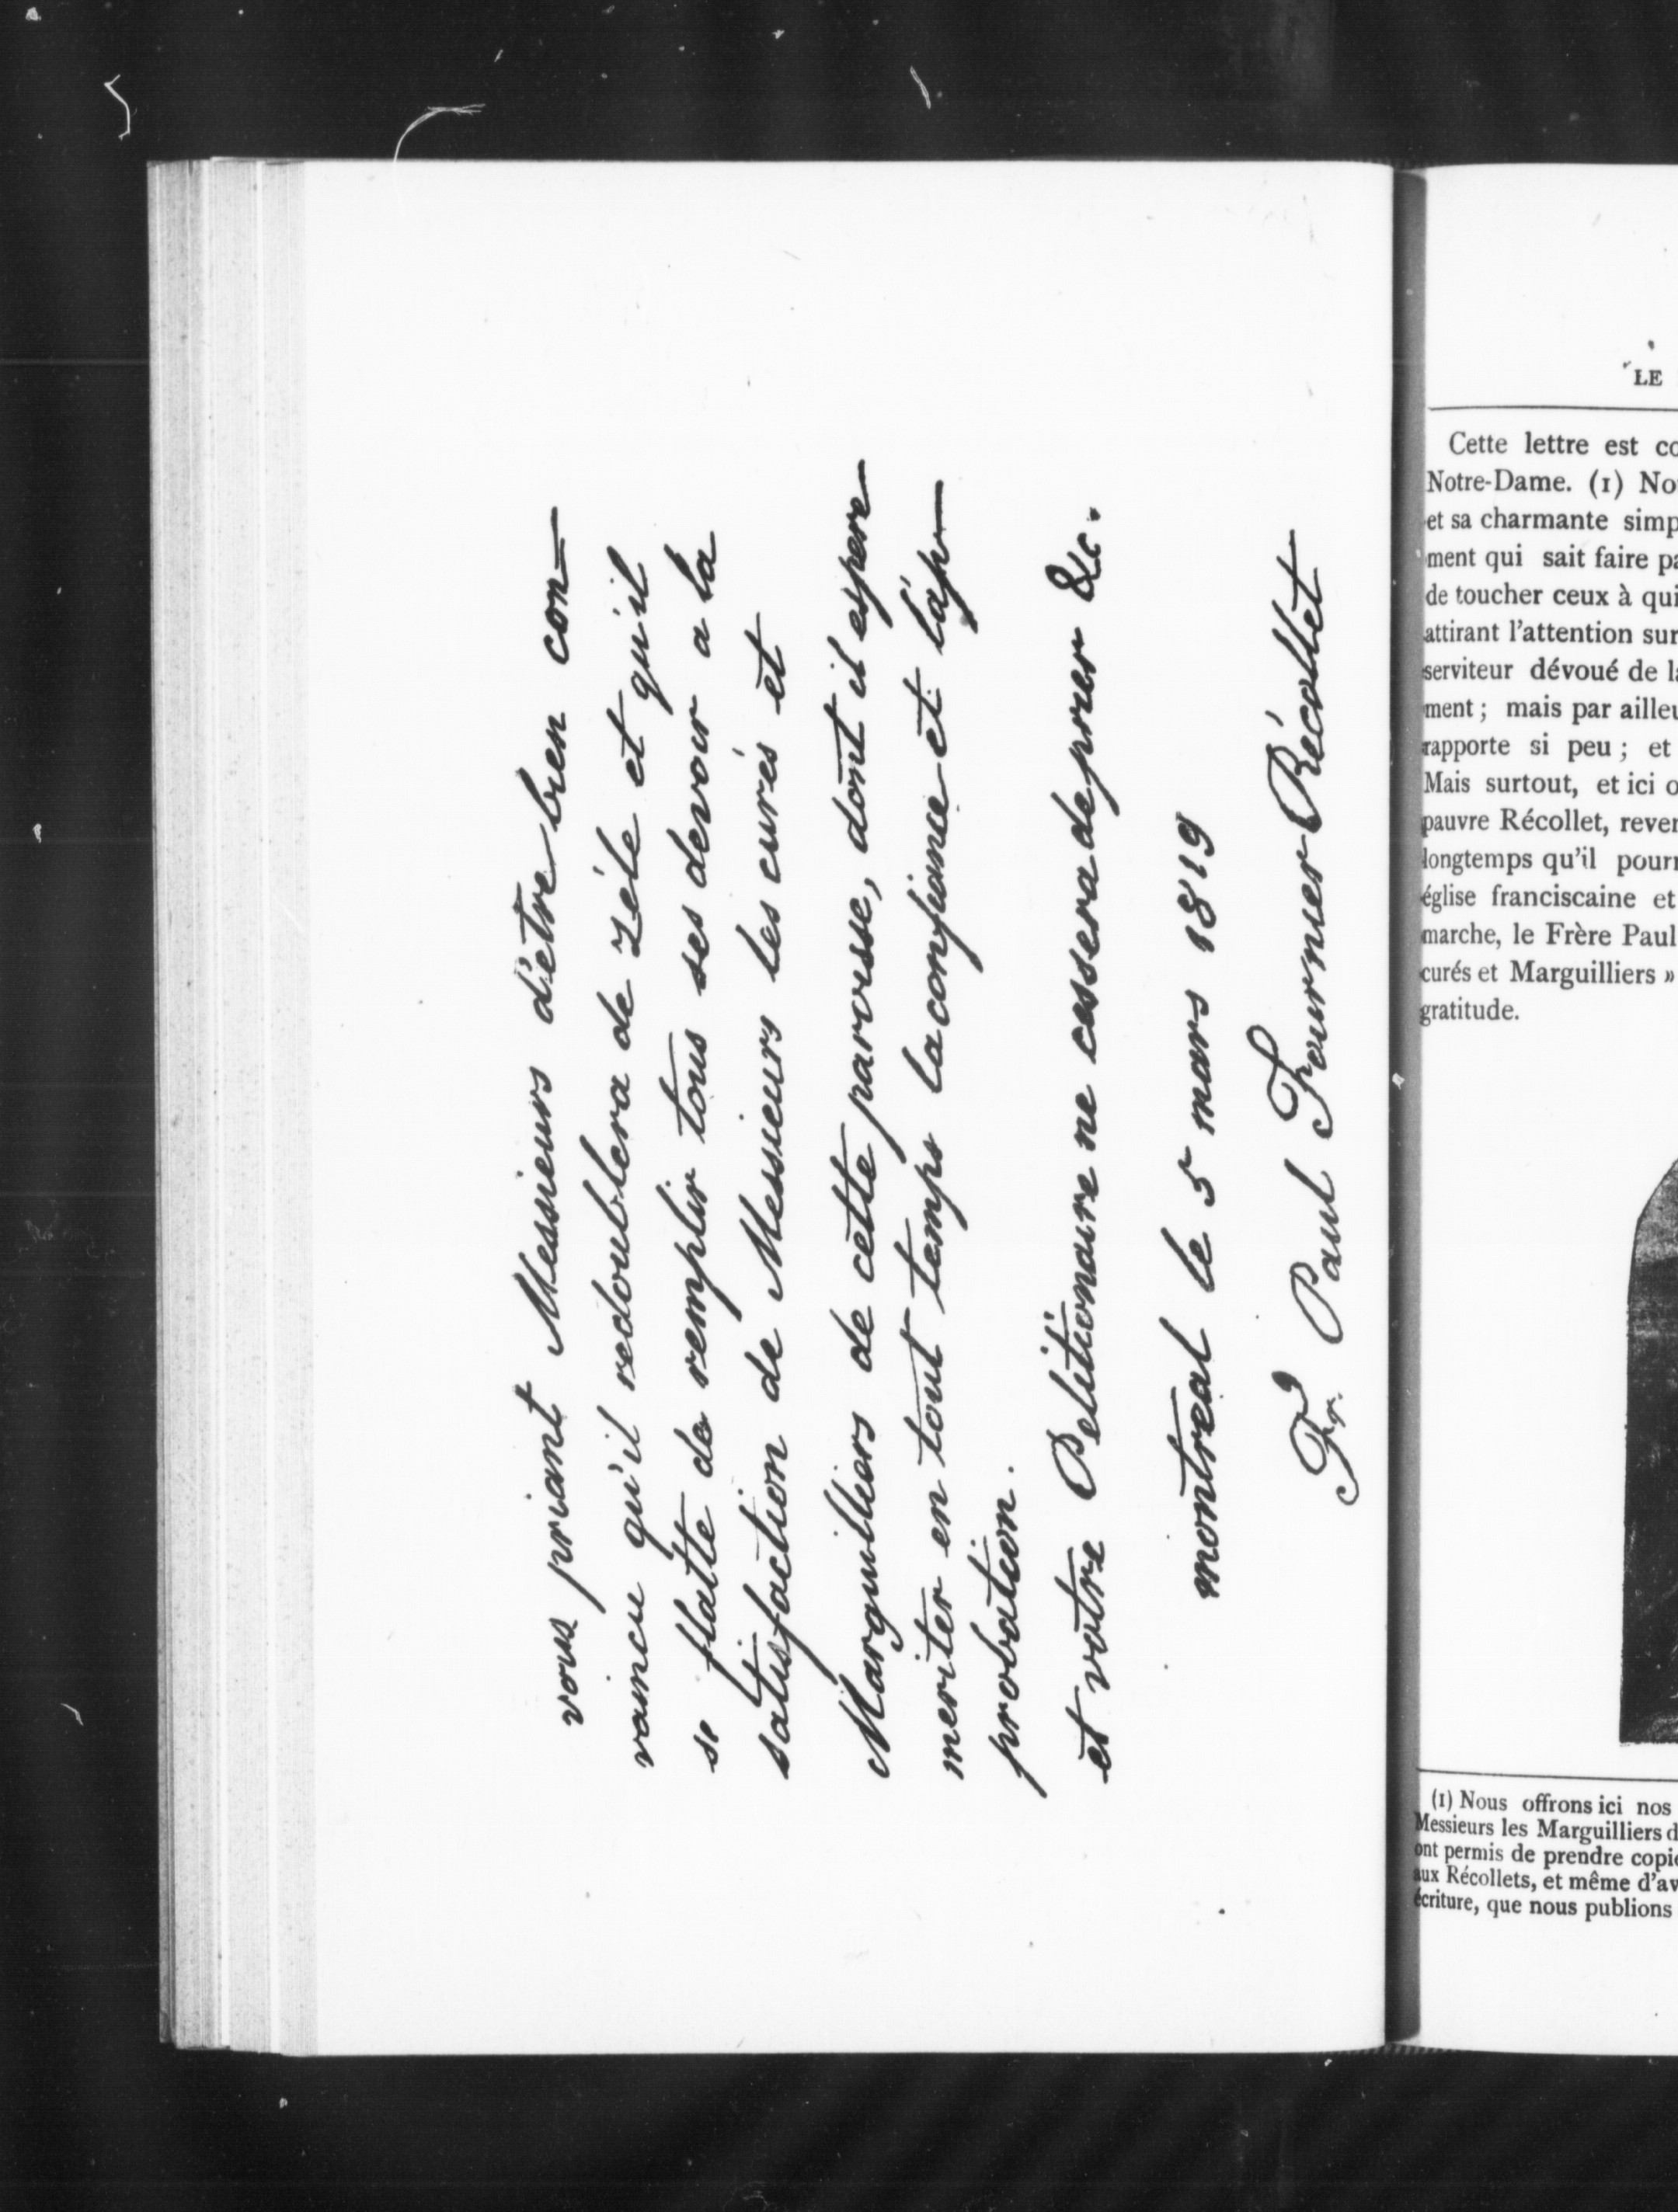 vous priant Messieurs d'être bien con-
vaincu qu'il redoublera de zéle et qu'il
se flatte de remplir tous ses devoir a la
satisfaction de Messieurs les curés et
Marguilliers de cette paroisse, dont il espere
meriter en tout temps la confiance et l'ap-
probation.
et votre Petitionaire ne cessera de prier &c.
montreal le 5 mars 1819
Fr. Paul Fournier Récollet
LE
Cette lettre est co
Notre-Dame. (1) No
et sa charmante simp
ment qui sait faire pa
de toucher ceux à qui
attirant l'attention sur
serviteur dévoué de la
ment ; mais par ailleu
rapporte si peu ; et
Mais surtout, et ici o
pauvre Récollet, rever
longtemps qu'il pourr
église franciscaine et
marche, le Frère Paul
curés et Marguilliers »
gratitude.
(1) Nous offrons ici nos
Messieurs les Marguilliers d
ont permis de prendre copie
aux Récollets, et même d'av
écriture, que nous publions